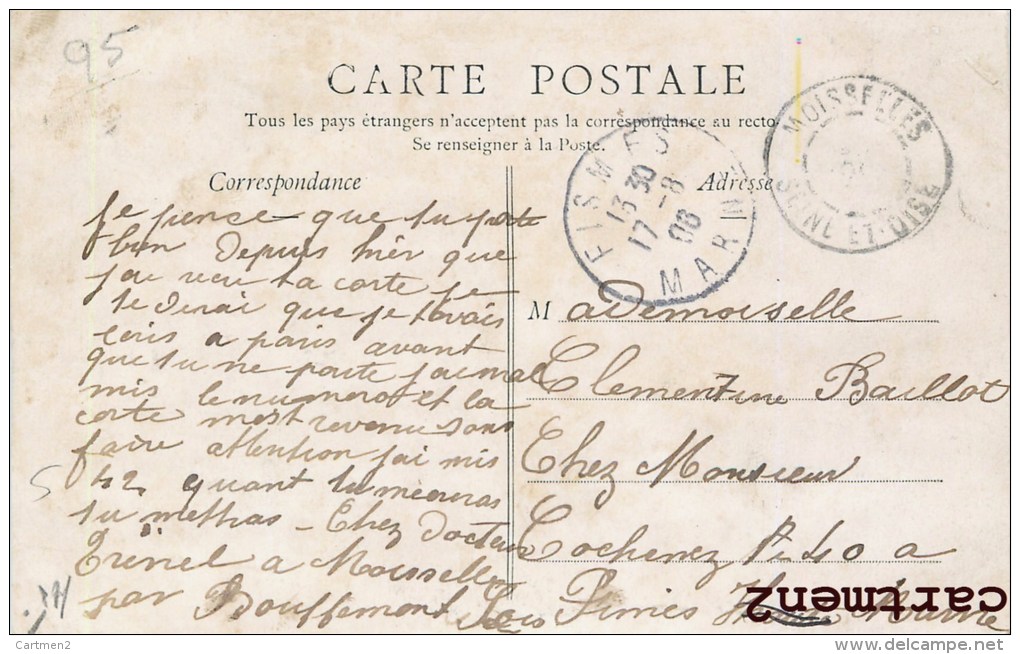 95
CARTE POSTALE
Tous les pays étrangers n'acceptent pas la correspondance au recto
Se renseigner à la Poste.
Correspondance
Adresse
FISMES
13 30
17 -8
06
MARNE
MOISSELLES
SEINE-ET-OISE
je pense que tu porte
bien Depuis hier que
jai recu ta carte je
te Dirai que je tavais
ecris a paris avant
que tu ne parte jai mal
mis le numero et la
carte mest revenu sans
faire attention jai mis
42 quant tu mecriras
tu mettras - Chez Docteur
Trénel a Moisselles
par Bouffemont
Mademoiselle
Clementine Baillot
Chez Monsieur
Cochenez 40 a
Fimes Marne
cartmen2
Cartmen2
delcampe.net